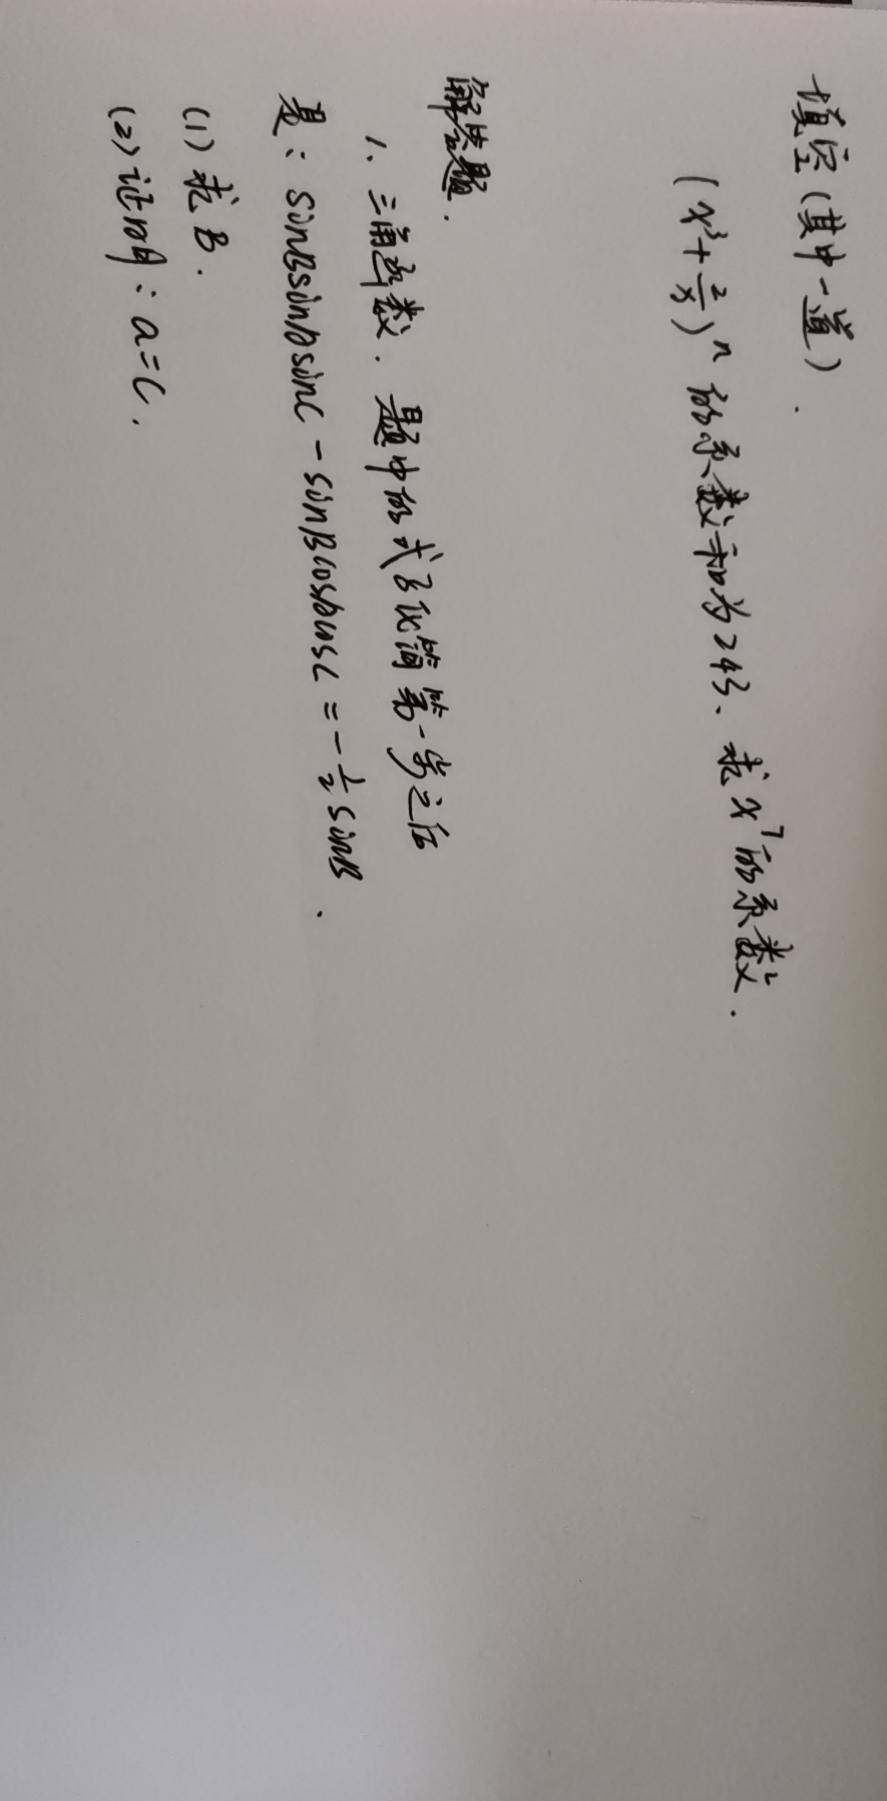 填空(其中一道).
(x³+2/x)ⁿ 的系数和为243、求x⁷的系数.
解答题.
1、三角函数.题中的式子化简第一步之后
是: sinBsinAsinC-sinBcosAcosC=-1/2sinB.
(1)求B.
(2)证明: a=c.